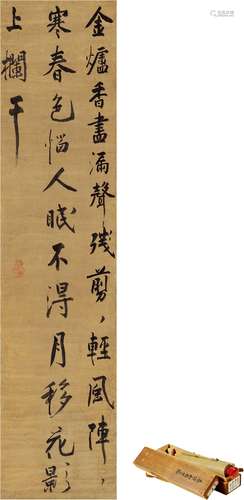 金爐香盡漏聲殘剪、輕風陣、
寒春色惱人眠不得月移花影
上欄干